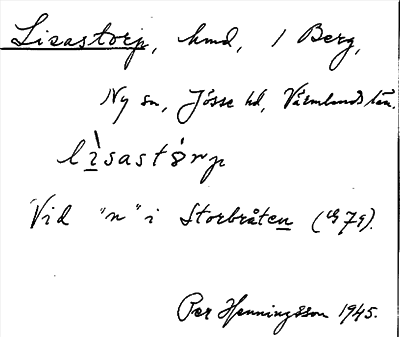 Lisastorp, hmd, 1 Berg,
Ny sn, Jösse hd, Värmlands län.
lìsastòrp
Vid "n" i Storbråten (G79).
Per Henningsson 1945.